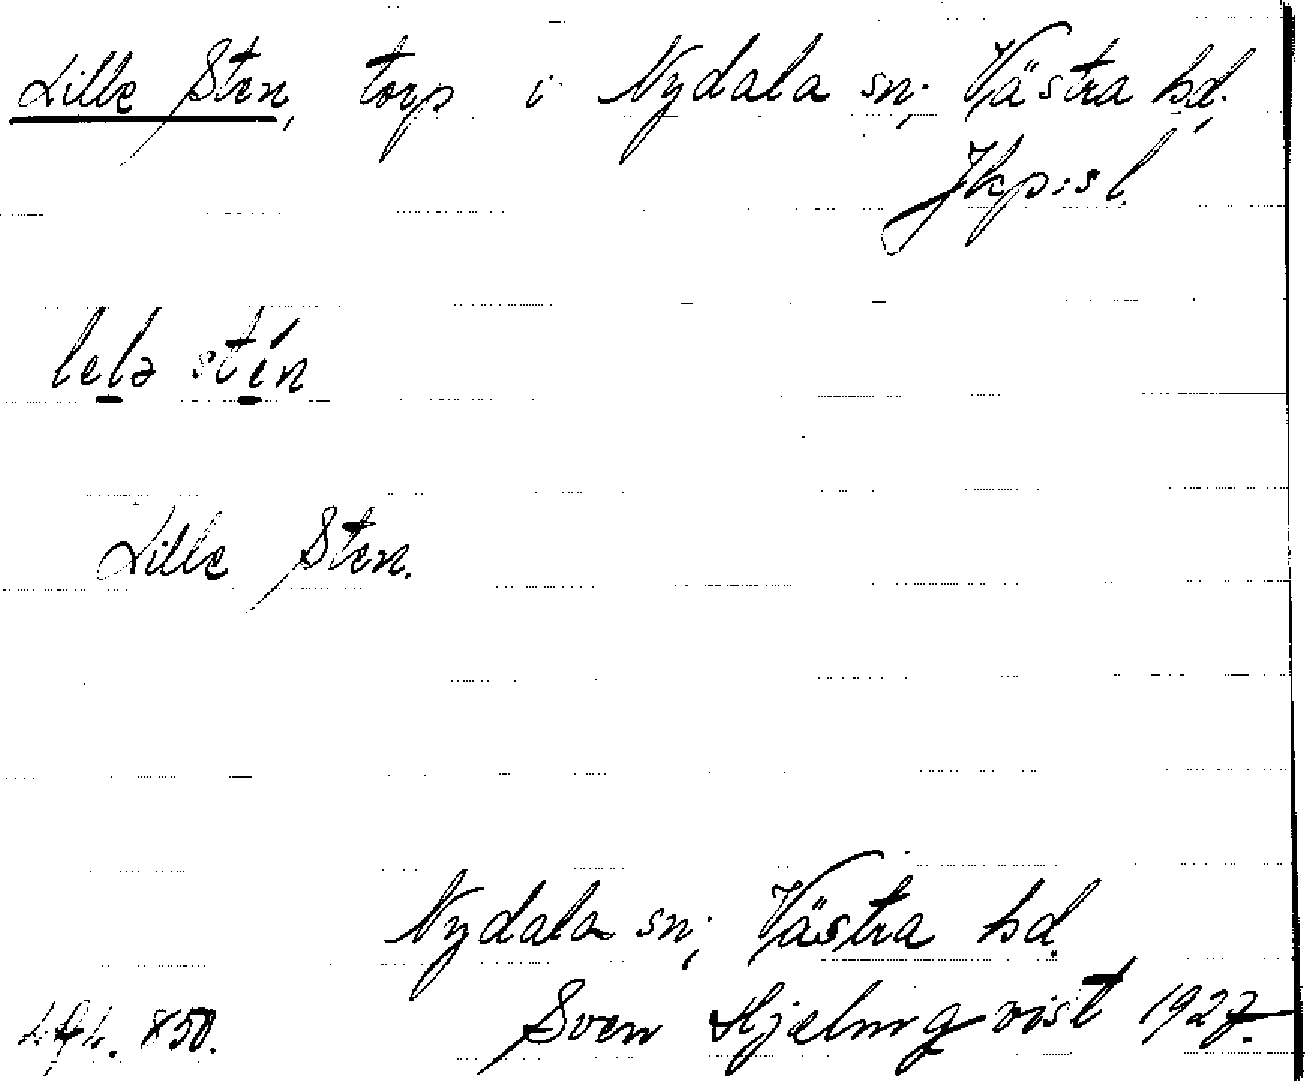 Lille Sten, torp i Nydala sn; Västra hd;
Jkp:s l.
lelə stén
Lille Sten.
Nydala sn; Västra hd.
Sven Hjelmqvist 1927.
850.